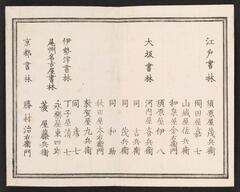 江戸書林
須原屋茂兵衛
岡田屋嘉七
山城屋佐兵衛
和泉屋金右衛門
須原屋伊八
大坂書林
河内屋喜兵衛
同 吉兵衛
同 茂兵衛
同 和助
秋田屋太右衛門
敦賀屋九兵衛
伊勢津書林
同 彦七
尾州名古屋書林
丁子屋清七
永樂屋東四郎
菱屋藤兵衛
京都書林
勝村治右衛門